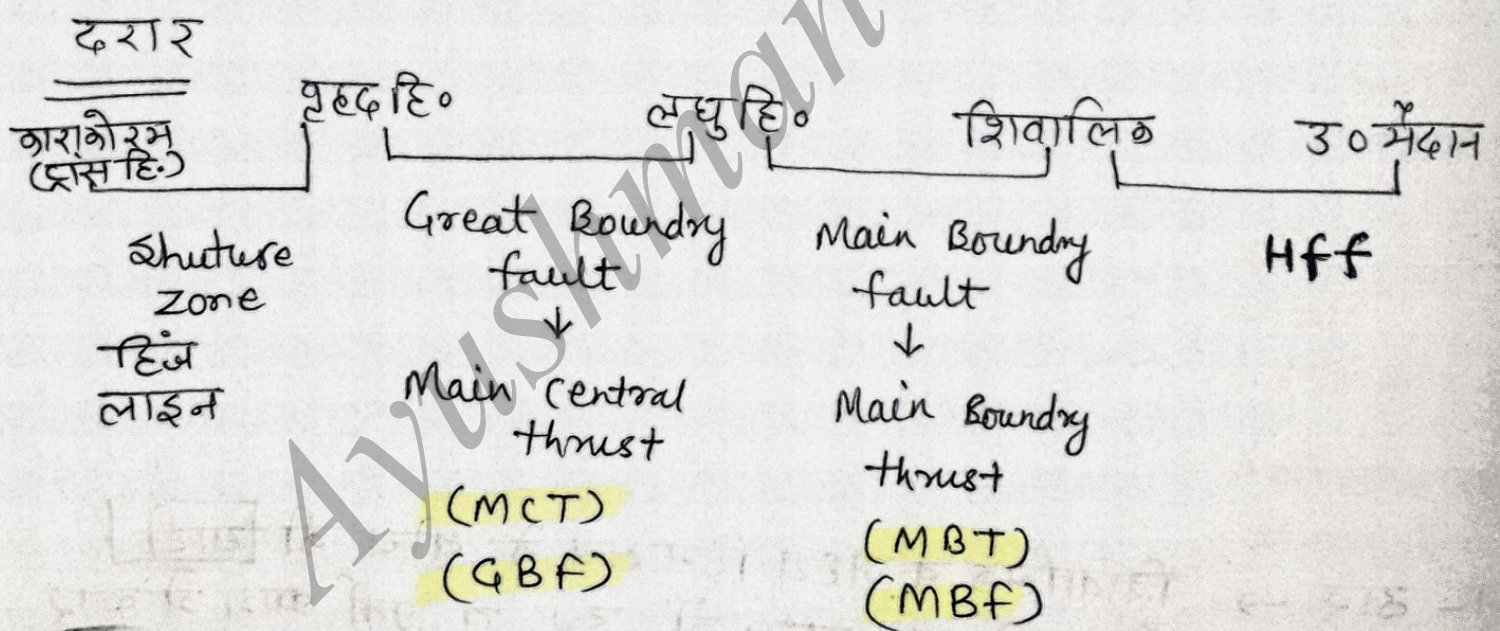 दरार
काराकोरम
(ट्रांस हि.)
वृहद हि०
लघु हि०
शिवालिक
उ० मैदान
Shuture
zone
हिंज
लाइन
Great Boundry
fault
↓
Main Central
thrust
(MCT)
(GBF)
Main Boundry
fault
↓
Main Boundry
thrust
(MBT)
(MBF)
Hff
Ayushman